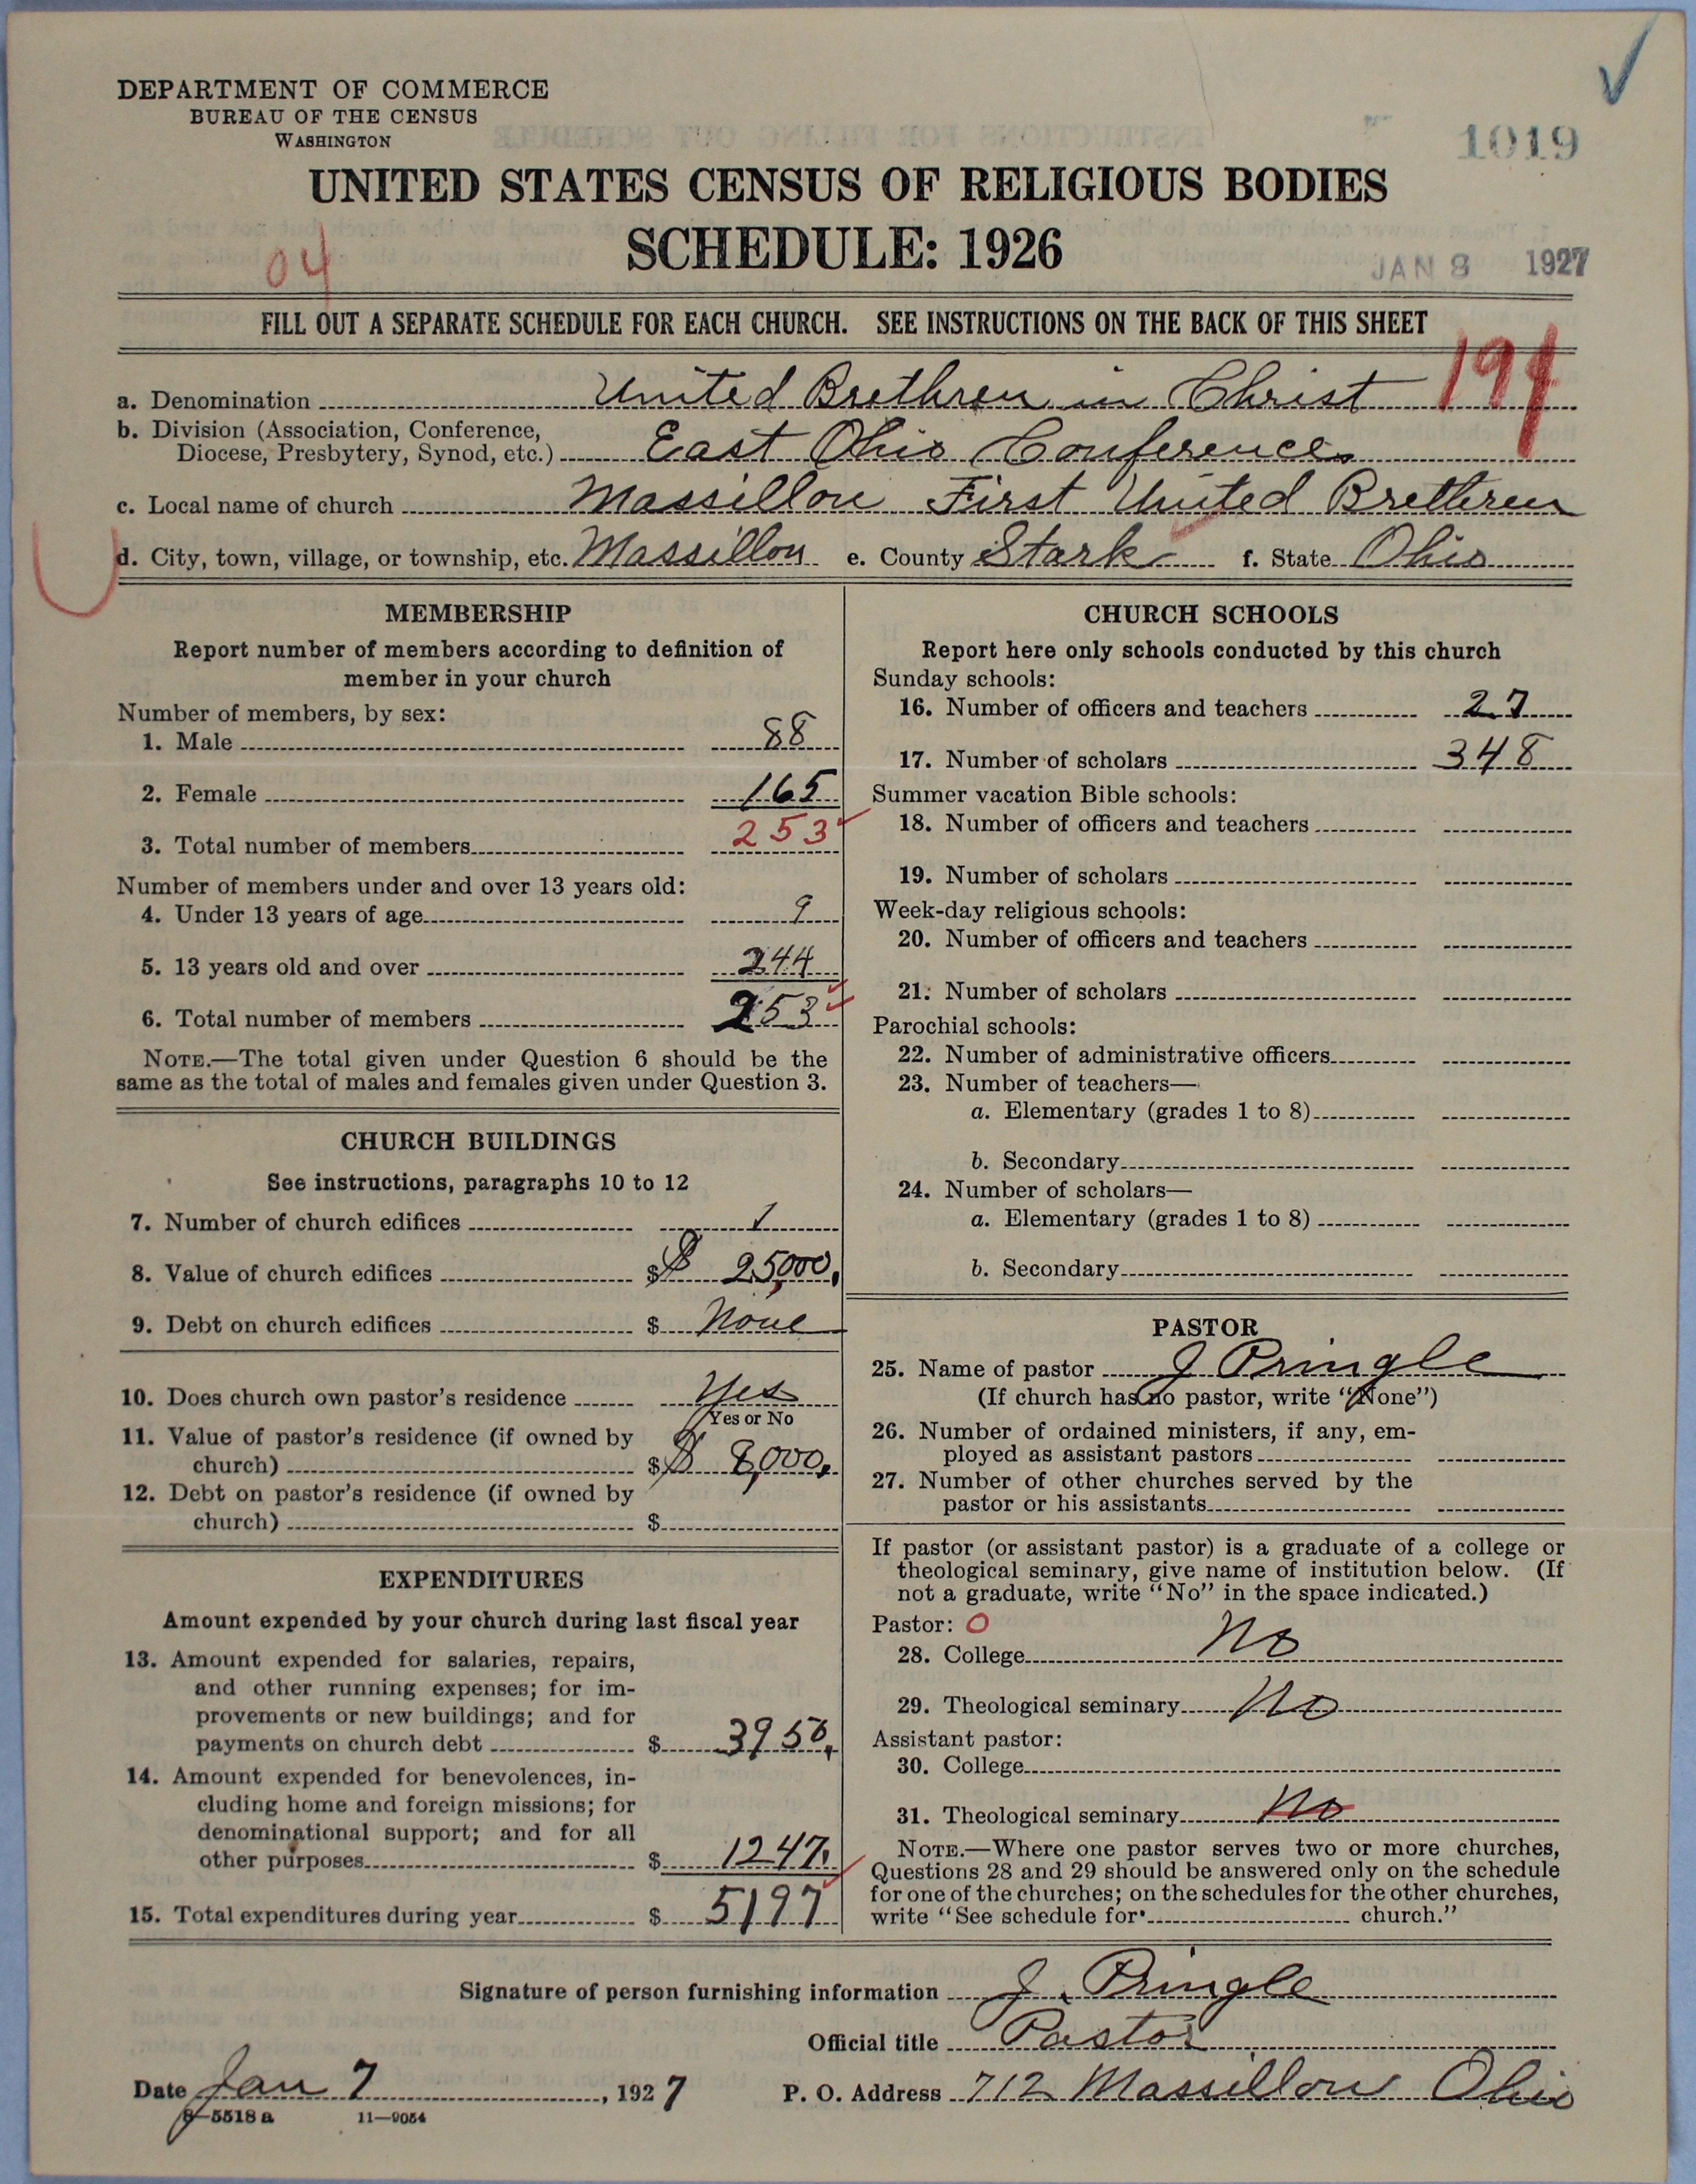 DEPARTMENT OF COMMERCE
BUREAU OF THE CENSUS
WASHINGTON
1019
UNITED STATES CENSUS OF RELIGIOUS BODIES
SCHEDULE: 1926
04
JAN 8 1927
FILL OUT A SEPARATE SCHEDULE FOR EACH CHURCH. SEE INSTRUCTIONS ON THE BACK OF THIS SHEET
a. Denomination United Brethren in Christ
b. Division (Association, Conference,
Diocese, Presbytery, Synod, etc.) East Ohio Conference
c. Local name of church Massillon First United Brethren
d. City, town, village, or township, etc. Massillon e. County Stark f. State Ohio
MEMBERSHIP
Report number of members according to definition of
member in your church
Number of members, by sex:
1. Male 88
2. Female 165
3. Total number of members 253
Number of members under and over 13 years old:
4. Under 13 years of age 9
5. 13 years old and over 244
6. Total number of members 253
NOTE.—The total given under Question 6 should be the
same as the total of males and females given under Question 3.
CHURCH BUILDINGS
See instructions, paragraphs 10 to 12
7. Number of church edifices 1
8. Value of church edifices $ $ 25,000.
9. Debt on church edifices $ None
10. Does church own pastor's residence Yes
Yes or No
11. Value of pastor's residence (if owned by
church) $ $ 8,000.
12. Debt on pastor's residence (if owned by
church) $
EXPENDITURES
Amount expended by your church during last fiscal year
13. Amount expended for salaries, repairs,
and other running expenses; for im-
provements or new buildings; and for
payments on church debt $ 3950.
14. Amount expended for benevolences, in-
cluding home and foreign missions; for
denominational support; and for all
other purposes $ 1247.
15. Total expenditures during year $ 5197
CHURCH SCHOOLS
Report here only schools conducted by this church
Sunday schools:
16. Number of officers and teachers 27
17. Number of scholars 348
Summer vacation Bible schools:
18. Number of officers and teachers
19. Number of scholars
Week-day religious schools:
20. Number of officers and teachers
21. Number of scholars
Parochial schools:
22. Number of administrative officers
23. Number of teachers—
a. Elementary (grades 1 to 8)
b. Secondary
24. Number of scholars—
a. Elementary (grades 1 to 8)
b. Secondary
PASTOR
25. Name of pastor J Pringle
(If church has no pastor, write "None")
26. Number of ordained ministers, if any, em-
ployed as assistant pastors
27. Number of other churches served by the
pastor or his assistants
If pastor (or assistant pastor) is a graduate of a college or
theological seminary, give name of institution below. (If
not a graduate, write "No" in the space indicated.)
Pastor: O
28. College No
29. Theological seminary No
Assistant pastor:
30. College
31. Theological seminary No
NOTE.—Where one pastor serves two or more churches,
Questions 28 and 29 should be answered only on the schedule
for one of the churches; on the schedules for the other churches,
write "See schedule for church."
Signature of person furnishing information J. Pringle
Official title Pastor
Date Jan 7, 1927 P. O. Address 712 Massillon Ohio
8—5518 a 11—9054